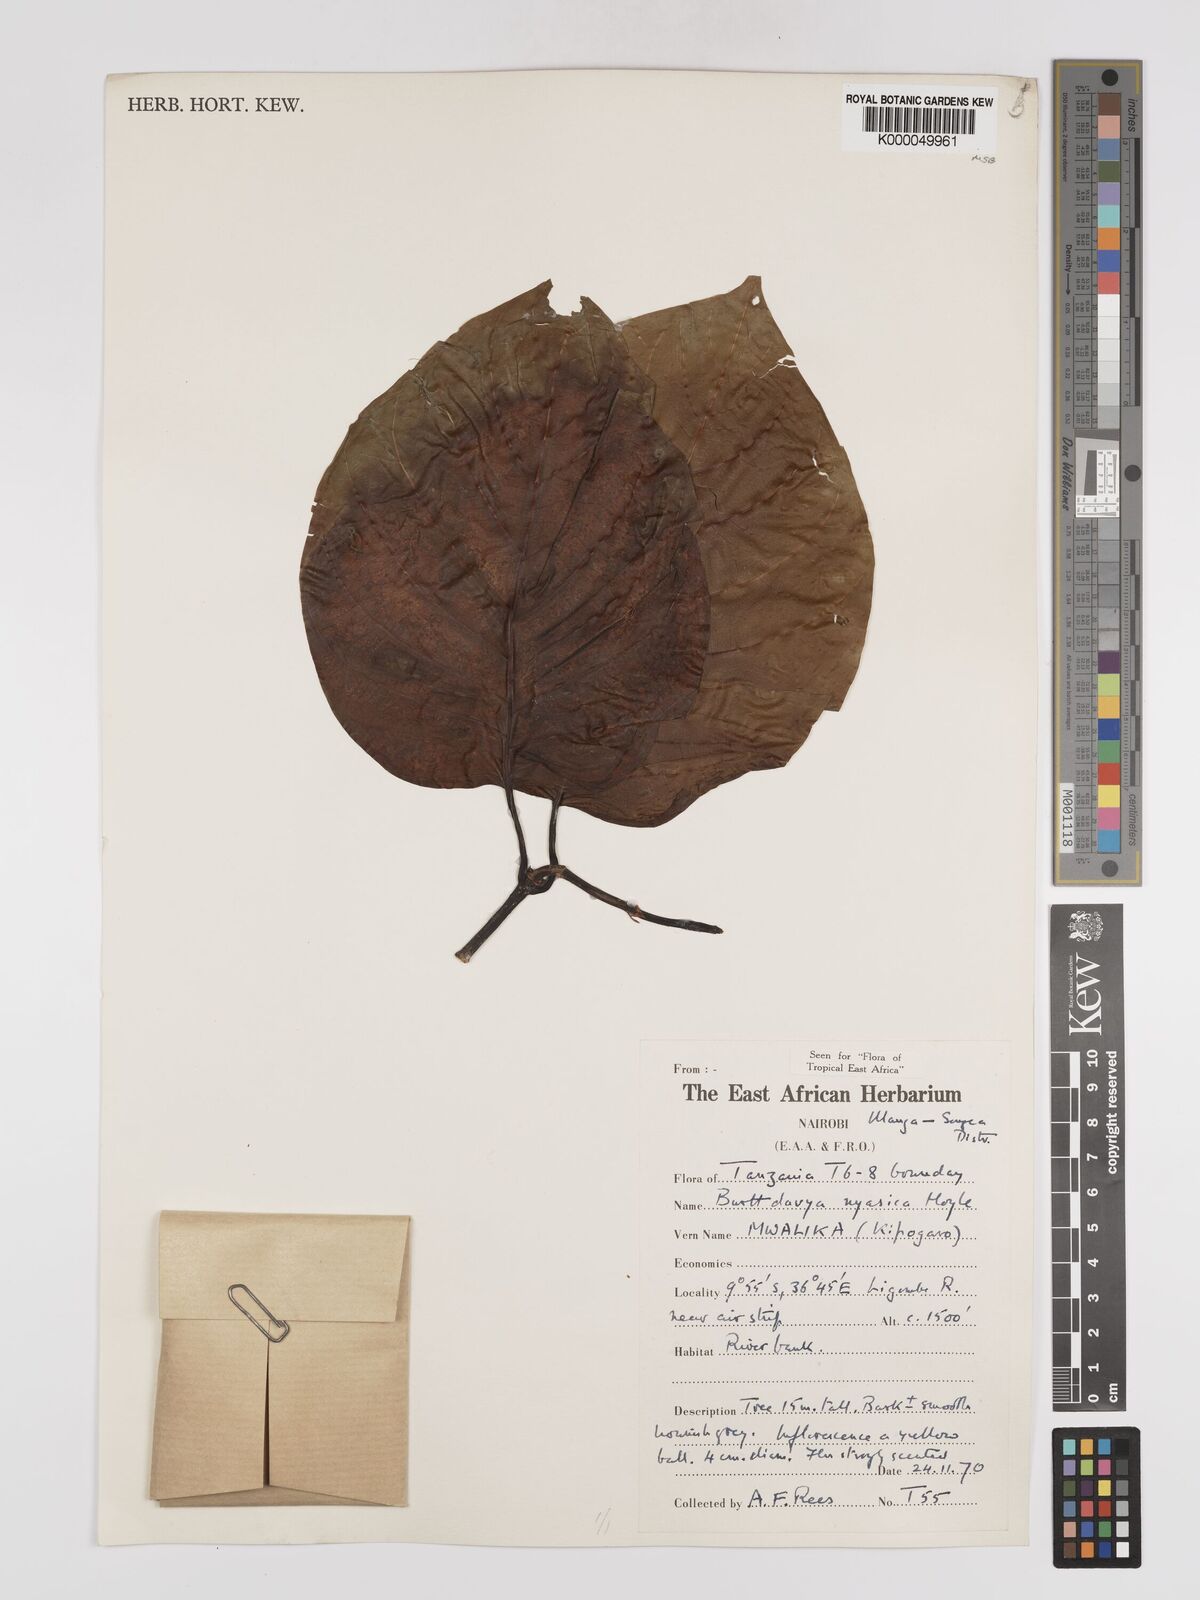 HERB. HORT. KEW.
ROYAL BOTANIC GARDENS KEW
K000049961
MSB
Seen for "Flora of
Tropical East Africa"
From : -
The East African Herbarium
NAIROBI
Distr.
(E.A.A. & F.R.O.)
Flora of Tanzania T6-8 bounday
Name Burttdavya nyasica Hoyle
Vern Name MWALIKA (Kipogoro)
Economics
Locality 9°55'S, 36°45'E R.
near air strip Alt. c. 1500'
Habitat River bank.
Description Tree 15m. tall. Bark ± smooth
grey. Inflorescence a yellow
ball. 4 cm. diam. scented
Date 24.11.70
Collected by A.F. Rees No. T55
inches
centimeters
Density
Don Williams
M001118
Kew
Royal Botanic Gardens
copyright reserved
0 1 2 3 4 5 6 7 8 9 10
cm